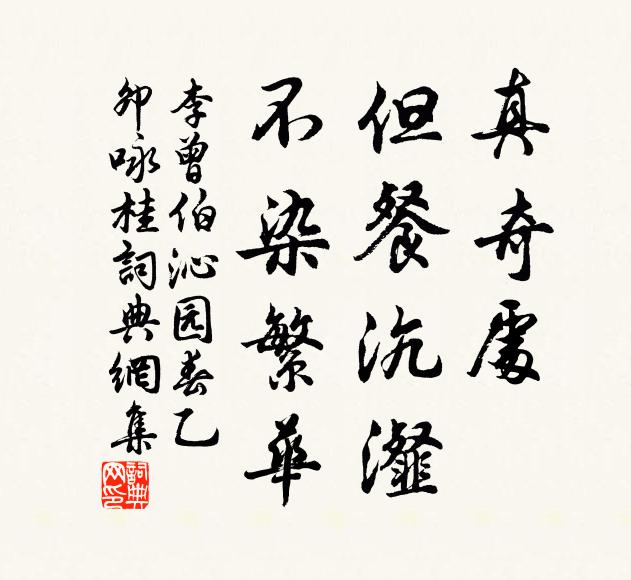 真奇處
但餐沆瀣
不染繁華
李曾伯沁园春乙
卯咏桂詞典網集
詞典网印